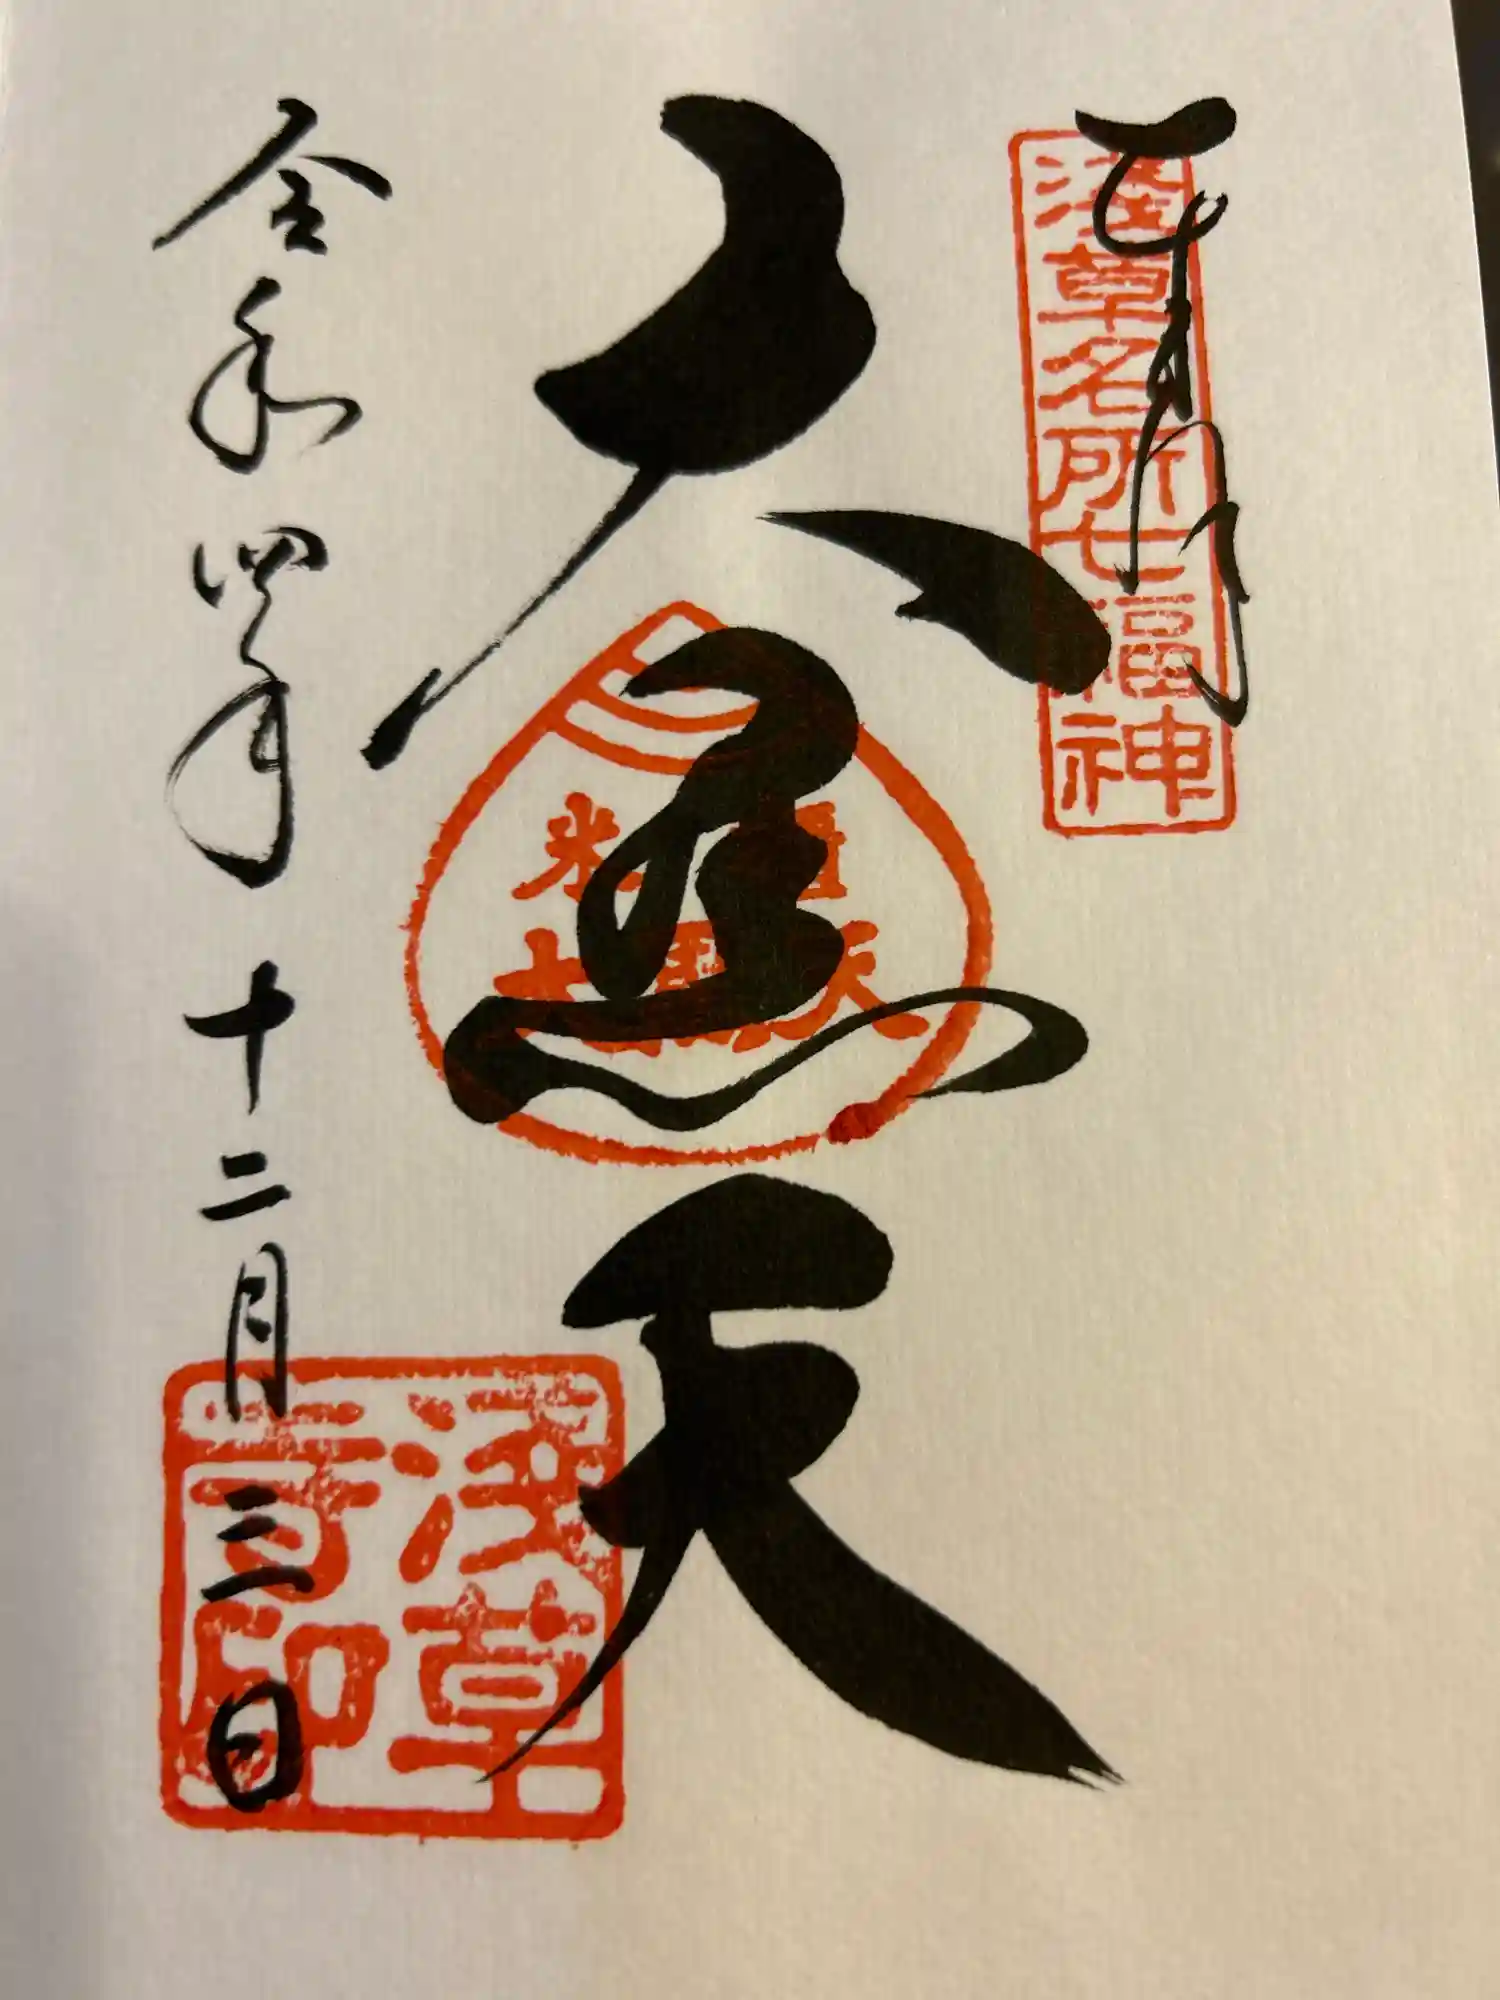 奉拝
浅草名所七福神
大黒天
米
天
令和四年十二月三日
浅草
寺印